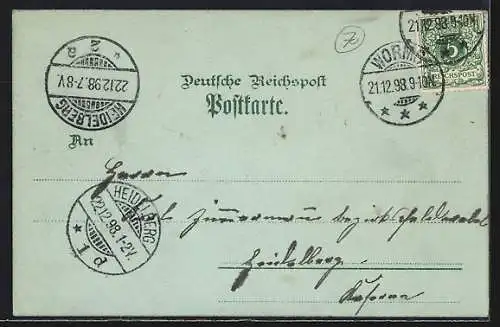 21.12.98.9-10N.
5
REICHSPOST
WORMS
21.12.98.9-10N.
* * *
HEIDELBERG
22.12.98.7-8V.
* 2 a
Deutsche Reichspost
Postkarte.
An
Herrn
HEIDELBERG
22.12.98.1-2V.
* 1 d
Karl Zimmermann
Heidelberg
Kaserne